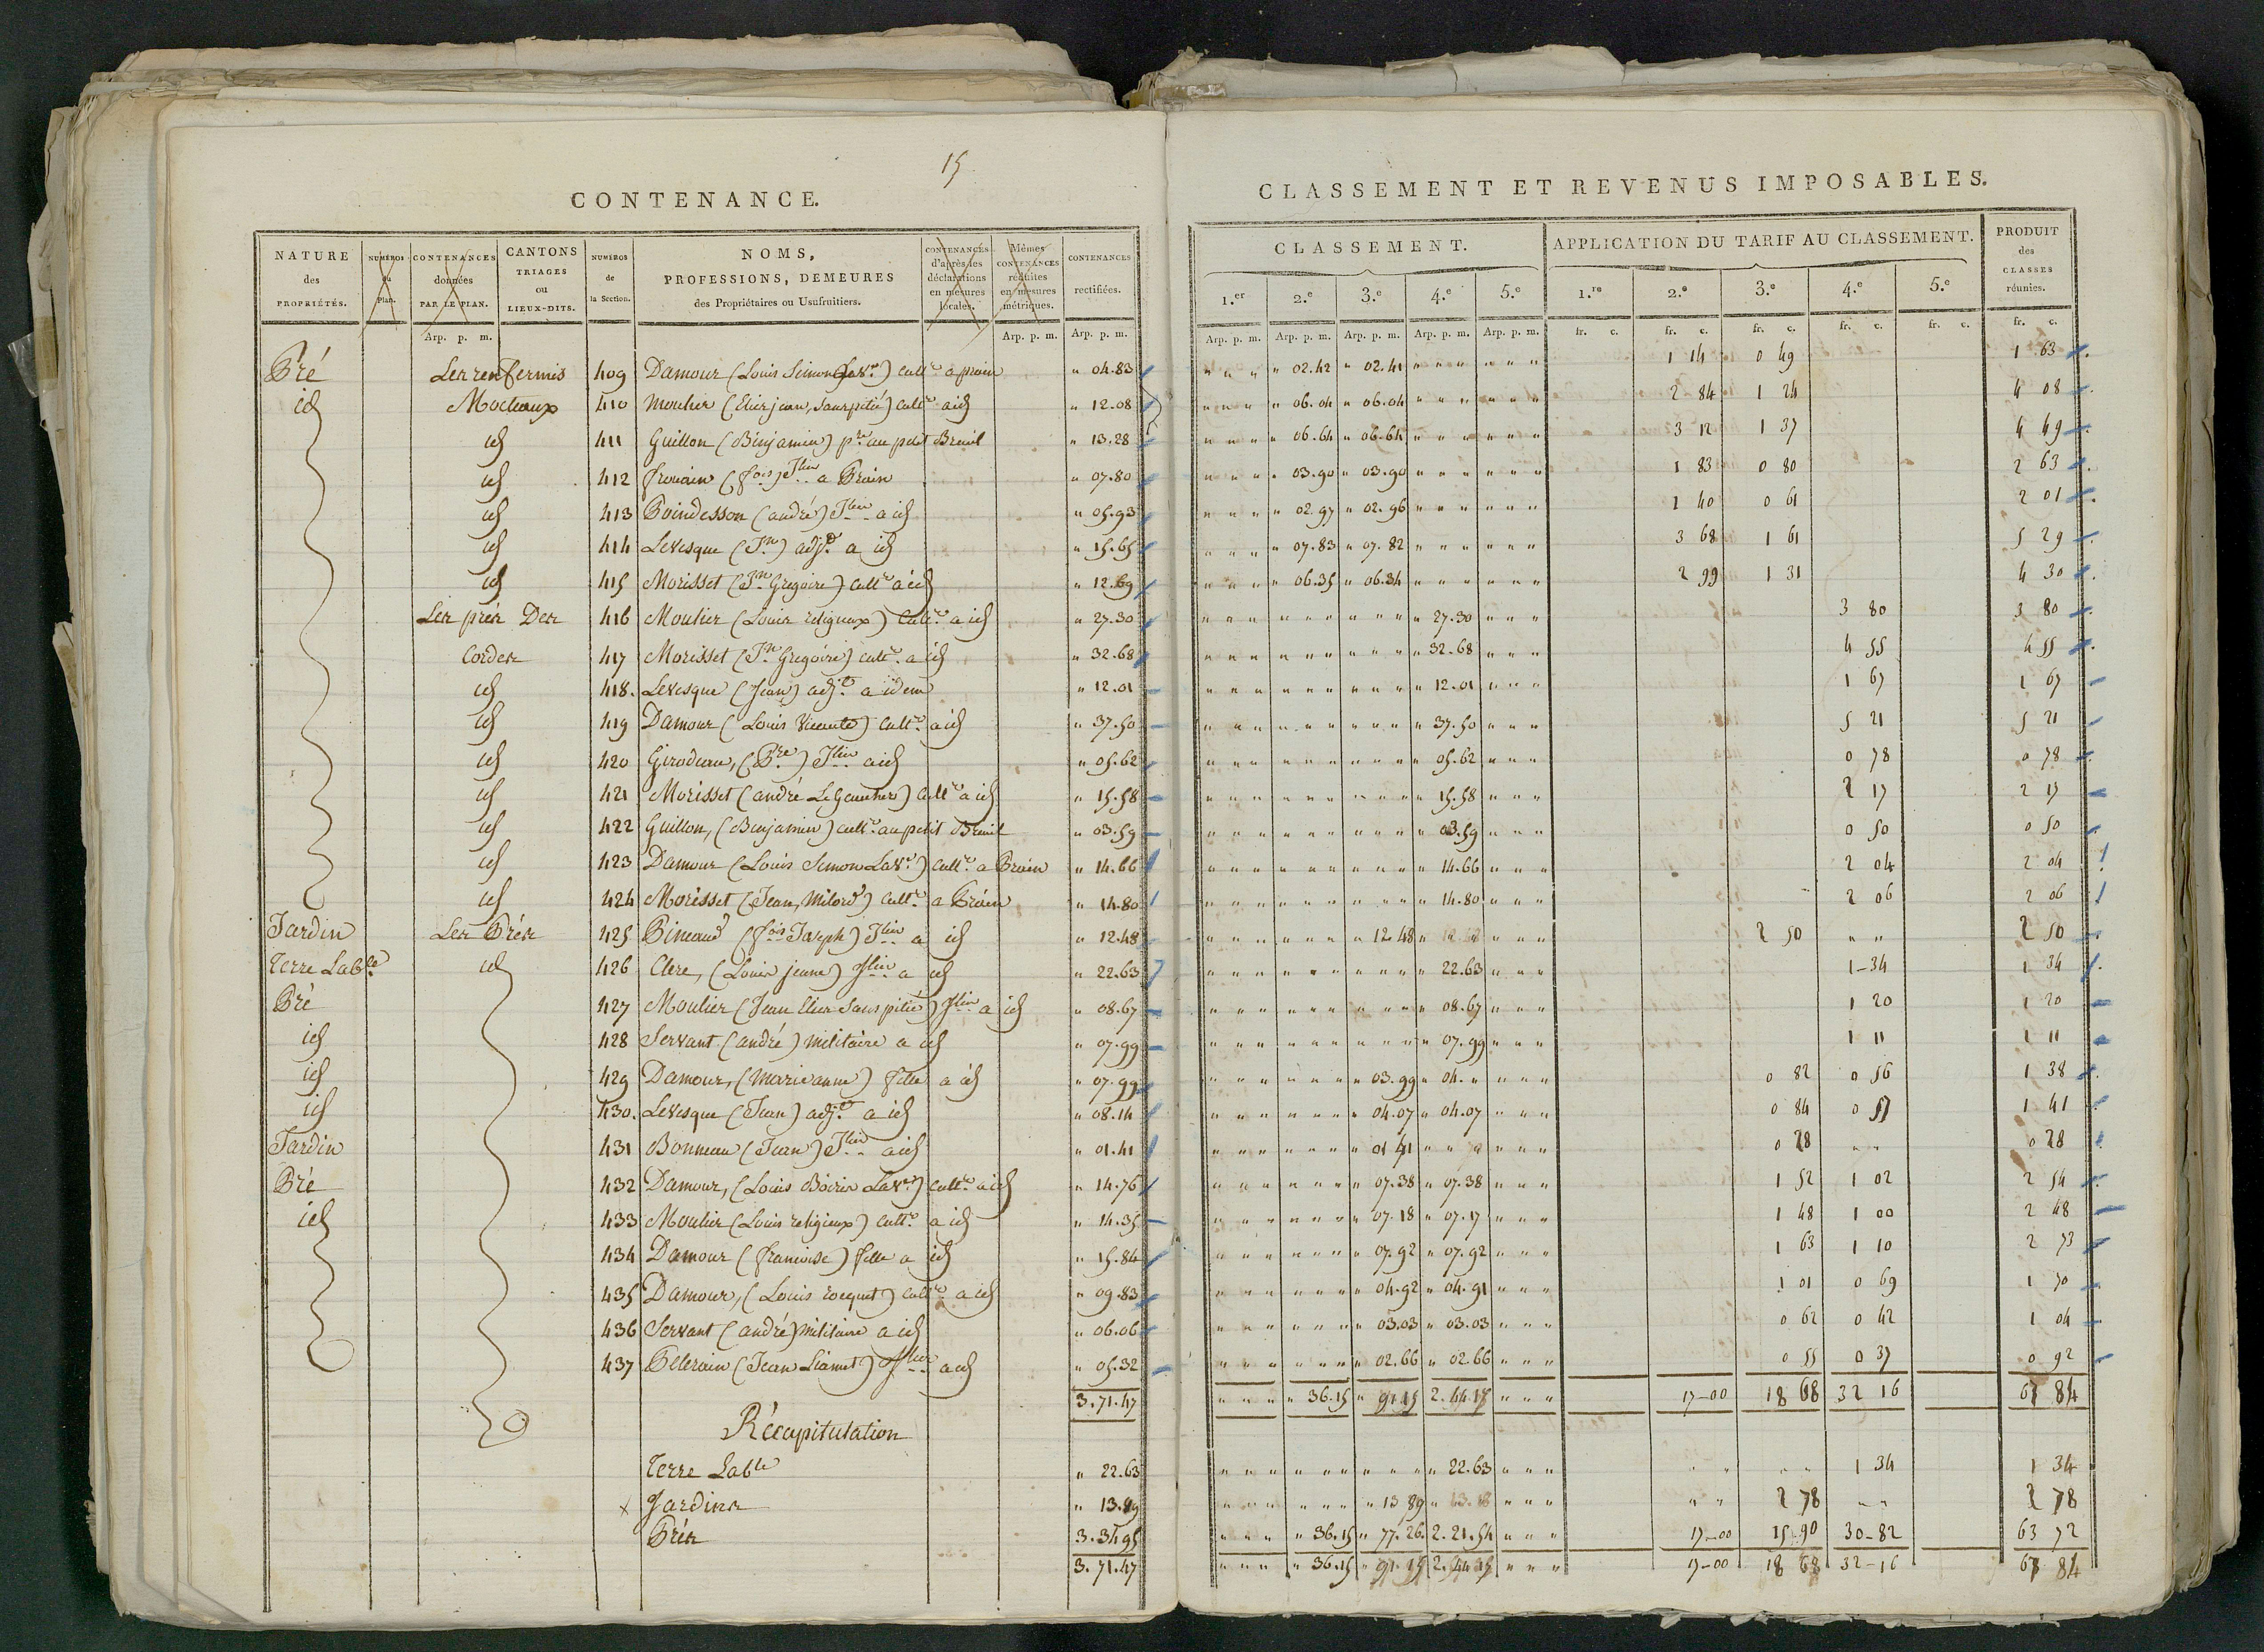 15
CONTENANCE.
NATURE des PROPRIÉTÉS. | NUMÉROS du Plan. | CONTENANCES données PAR LE PLAN. | CANTONS TRIAGES ou LIEUX-DITS. | NUMÉROS de la Section. | NOMS, PROFESSIONS, DEMEURES des Propriétaires ou Usufruitiers. | CONTENANCES d'après les déclarations en mesures locales. | Mêmes CONTENANCES réduites en mesures métriques. | CONTENANCES rectifiées.
Arp. p. m. | Arp. p. m. | Arp. p. m.
Pré Les renfermis 409 Damour (Louis Simon Lavr.) cultr. a prain " 04.83
id Mocheaux 410 Moulier (Elie jean, sans pitié) cultr a id " 12.08
id 411 Guillon (Binjamin) pre au petit Breuil " 13.28
id 412 frouain (fois) Jlier a Prain " 07.80
id 413 Boindesson (andré) Jlier a id " 05.93
id 414 Levesque (Jn) adjt a id " 15.65
id 415 Morisset (Jn Gregoire) cultr a id " 12.69
Les prés Des 416 Moulier (Louis religieux) Cultr. a id " 27.30
Cordes 417 Morisset (Jn Gregoire) cultr. a id " 32.68
id 418. Levesque (Jean) adjt a idem " 12.01
id 419 Damour (Louis Vicente) Cultr. a id " 37.50
id 420 Girodeau, (Pre) Jlier a id " 05.62
id 421 Morisset (andré Le Gauthier) Cultr a id " 15.58
id 422 Guillon, (Binjamin) cultr. au petit Breuil " 03.59
id 423 Damour (Louis Simon Lavr.) cultr. a Prain " 14.66
id 424 Morisset (Jean, Milord) Cultr. a Prain " 14.80
Jardin Les Prés 425 Bineaud (fois Joseph) Jlier a id " 12.48
Terre Lable id 426 Clere, (Louis jeune) Jlier a id " 22.63
Pré 427 Moulier (Jean Elie sans pitié) Jlier a id " 08.67
id 428 Servant (andré) militaire a id " 07.99
id 429 Damour, (Marie anne) fille a id " 07.99
id 430. Levesque (Jean) adjt a id " 08.14
Jardin 431 Bonneau (Jean) Jlier a id " 01.41
Pré 432 Damour, (Louis Boiris Lavr.) Cultr. a id " 14.76
id 433 Moulier (Louis religieux) cultr. a id " 14.35
434 Damour (francoise) fille a id " 15.84
435 Damour, (Louis rocquet) cultr a id " 09.83
436 Servant (andré) militaire a id " 06.06
437 Pellerain (Jean Liamet) Jlier a id " 05.32
3.71.47
Récapitulation
Terre Lable " 22.63
x Jardins " 13.89
Prés 3.34.95
3.71.47
CLASSEMENT ET REVENUS IMPOSABLES.
CLASSEMENT. | APPLICATION DU TARIF AU CLASSEMENT. | PRODUIT des CLASSES réunies.
1.er | 2.e | 3.e | 4.e | 5.e | 1.re | 2.e | 3.e | 4.e | 5.e
Arp. p. m. | Arp. p. m. | Arp. p. m. | Arp. p. m. | Arp. p. m. | fr. c. | fr. c. | fr. c. | fr. c. | fr. c. | fr. c.
" 02.42 " 02.41 1 14 0 49 1 63
" 06.04 " 06.04 2 84 1 24 4 08
" 06.64 " 06.64 3 12 1 37 4 49
" 03.90 " 03.90 1 83 0 80 2 63
" 02.97 " 02.96 1 40 0 61 2 01
" 07.83 " 07.82 3 68 1 61 5 29
" 06.35 " 06.34 2 99 1 31 4 30
" 27.30 3 80 3 80
" 32.68 4 55 4 55
" 12.01 1 67 1 67
" 37.50 5 21 5 21
" 05.62 0 78 0 78
" 15.58 2 17 2 17
" 03.59 0 50 0 50
" 14.66 2 04 2 04
" 14.80 2 06 2 06
" 12.48 2 50 " " 2 50
" 22.63 1-34 1 34
" 08.67 1 20 1 20
" 07.99 1 11 1 11
" 03.99 " 04. " 0 82 0 56 1 38
" 04.07 " 04.07 0 84 0 57 1 41
" 01 41 0 28 " " 0 28
" 07.38 " 07.38 1 52 1 02 2 54
" 07.18 " 07.17 1 48 1 00 2 48
" 07.92 " 07.92 1 63 1 10 2 73
" 04.92 " 04.91 1 01 0 69 1 70
" 03.03 " 03.03 0 62 0 42 1 04
" 02.66 " 02.66 0 55 0 37 0 92
" 36.15 " 91.15 2.44.18 17-00 18 68 32 16 67 84
" 22.63 " " " " 1 34 1 34
" 13 89 " " 2 78 " " 2 78
" 36.15 " 77.26. 2.21.54 17-00 15 90 30-82 63 72
" 36.15 " 91.15 2.44.15 17-00 18 68 32-16 67 84